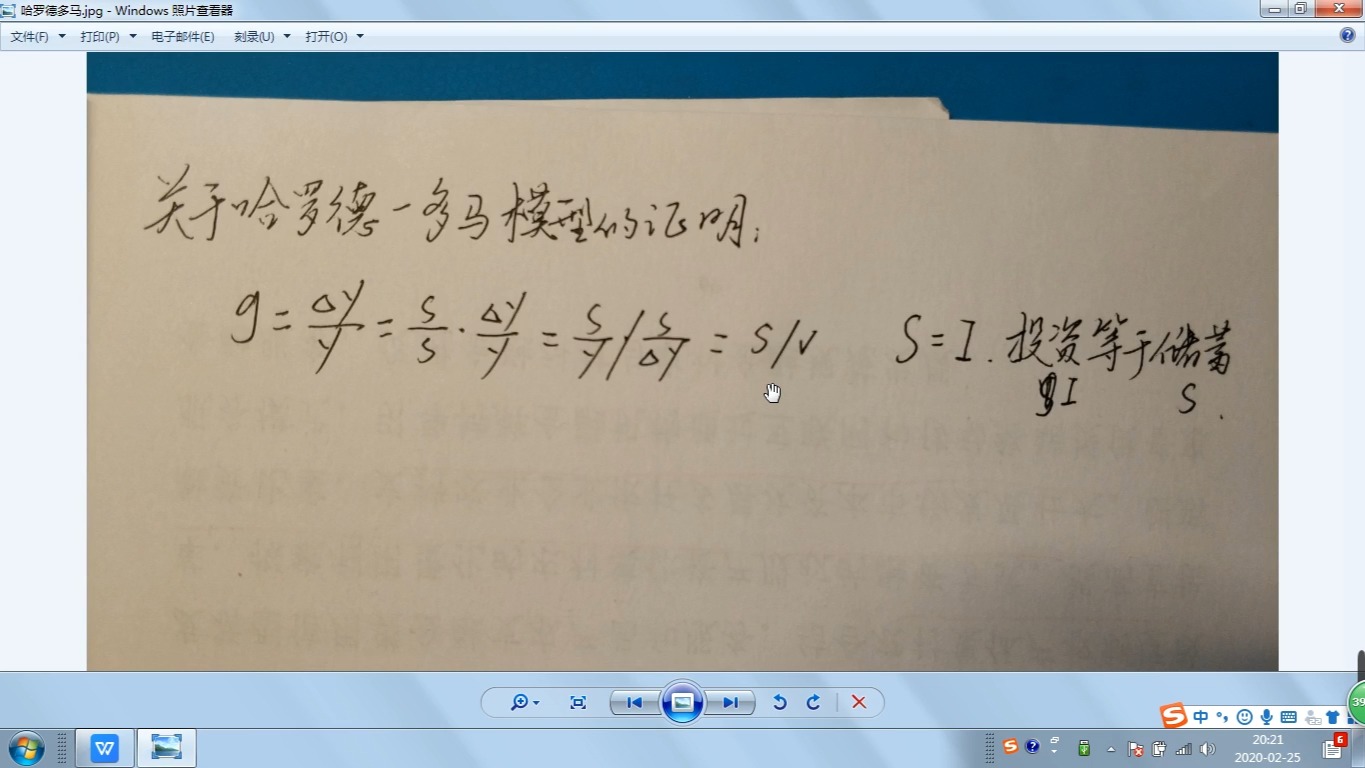 哈罗德多马.jpg - Windows 照片查看器
文件(F) 打印(P) 电子邮件(E) 刻录(U) 打开(O)
关于哈罗德-多马模型的证明:
g = ΔY/Y = S/S · ΔY/Y = S/Y / S/ΔY = s/v S = I. 投资等于储蓄
I S.
中
39
W
20:21
2020-02-25
6